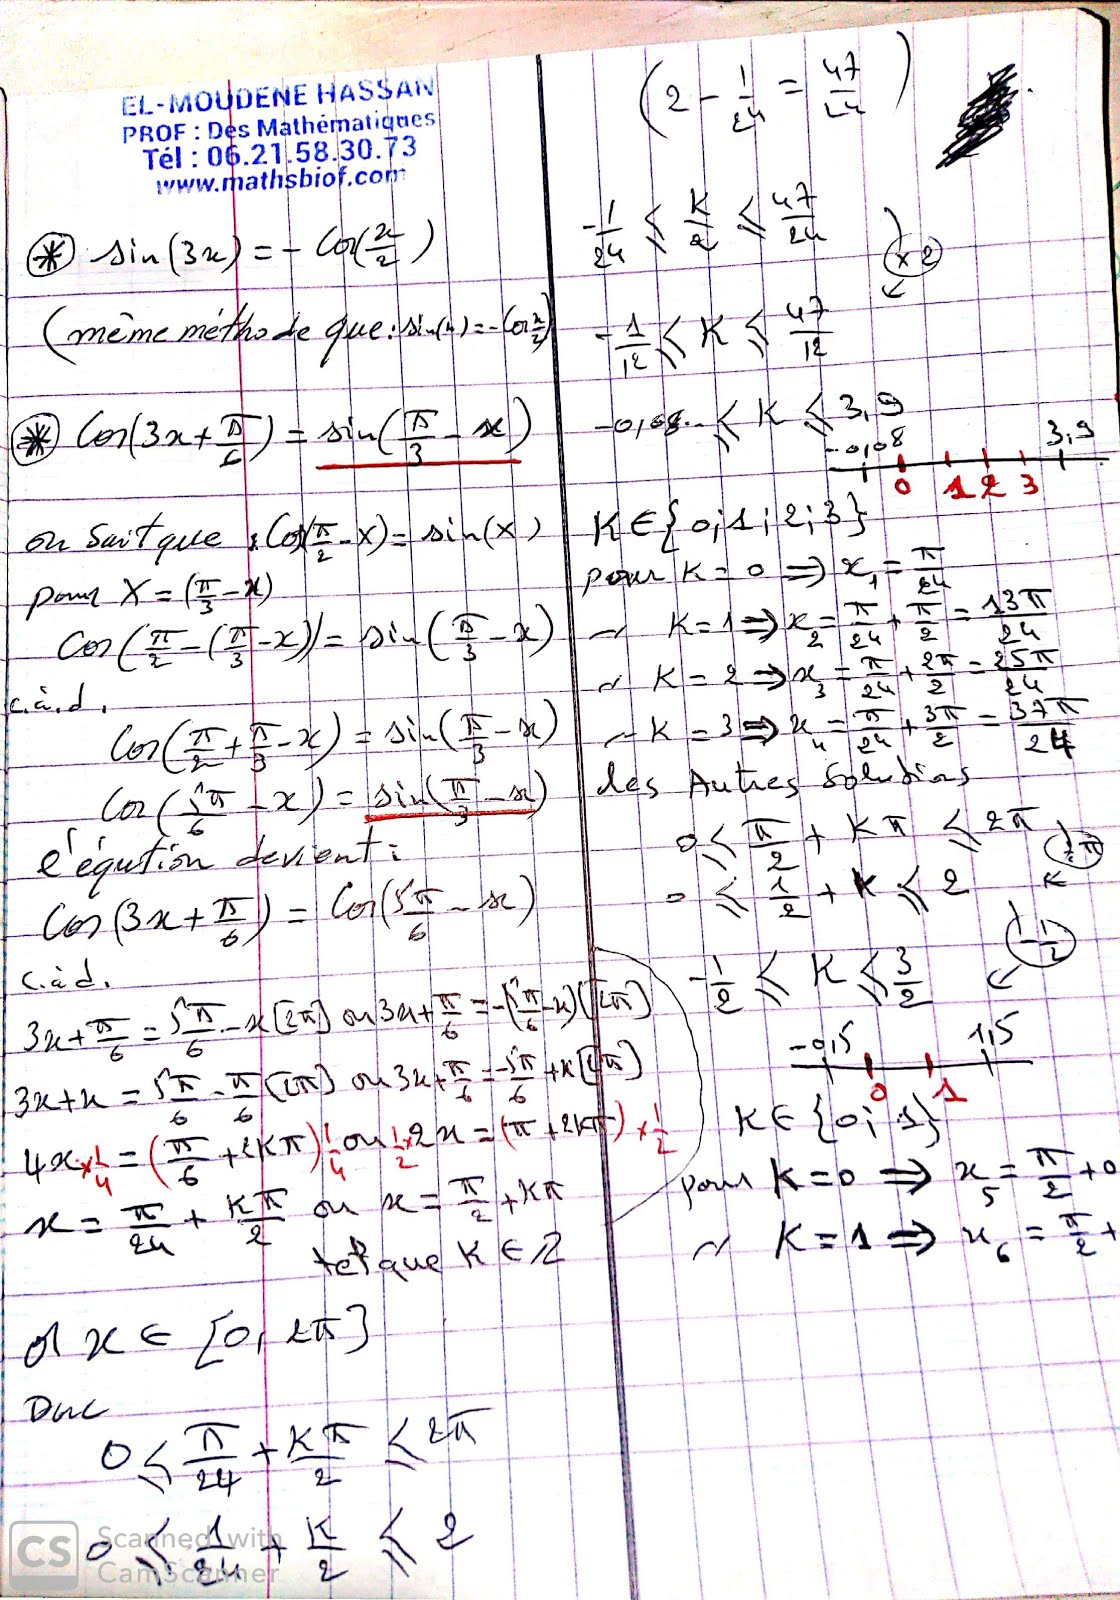 EL-MOUDENE HASSAN
PROF : Des Mathématiques
Tél : 06.21.58.30.73
www.mathsbiof.com
⊛ sin(3x) = - Cos(x/2)
(même méthode que: sin(x) = - Cos x/2)
⊛ Cos(3x + π/6) = sin(π/3 - x)
on sait que : Cos(π/2 - X) = sin(X)
pour X = (π/3 - x)
Cos(π/2 - (π/3 - x)) = sin(π/3 - x)
c.à.d.
Cos(π/2 + π/3 - x) = sin(π/3 - x)
Cos(5π/6 - x) = sin(π/3 - x)
l'éqution devient :
Cos(3x + π/6) = Cos(5π/6 - x)
c.à d.
3x + π/6 = 5π/6 - x [2π] ou 3x + π/6 = -(5π/6 - x) [2π]
3x + x = 5π/6 - π/6 [2π] ou 3x + π/6 = -5π/6 + x [2π]
4x × 1/4 = (π/6 + 2kπ) 1/4 ou 1/2 × 2x = (π + 2kπ) × 1/2
x = π/24 + kπ/2 ou x = π/2 + kπ
tel que K ∈ ℤ
or x ∈ [0, 2π]
Donc
0 ⩽ π/24 + Kπ/2 ⩽ 2π
0 ⩽ 1/24 + K/2 ⩽ 2
(2 - 1/24 = 47/24)
-1/24 ⩽ K/2 ⩽ 47/24
×2
-1/12 ⩽ K ⩽ 47/12
-0,08.. ⩽ K ⩽ 3,9
-0,08 3,9
0 1 2 3
K ∈ {0; 1; 2; 3}
pour K = 0 ⇒ x₁ = π/24
~ K = 1 ⇒ x₂ = π/24 + π/2 = 13π/24
~ K = 2 ⇒ x₃ = π/24 + 2π/2 = 25π/24
~ K = 3 ⇒ x₄ = π/24 + 3π/2 = 37π/24
les Autres Solutions
0 ⩽ π/2 + Kπ ⩽ 2π
÷π
0 ⩽ 1/2 + K ⩽ 2
-1/2
-1/2 ⩽ K ⩽ 3/2
-0,5 1,5
0 1
K ∈ {0; 1}
pour K = 0 ⇒ x₅ = π/2 + 0
~ K = 1 ⇒ x₆ = π/2 +
CS Scanned with
CamScanner